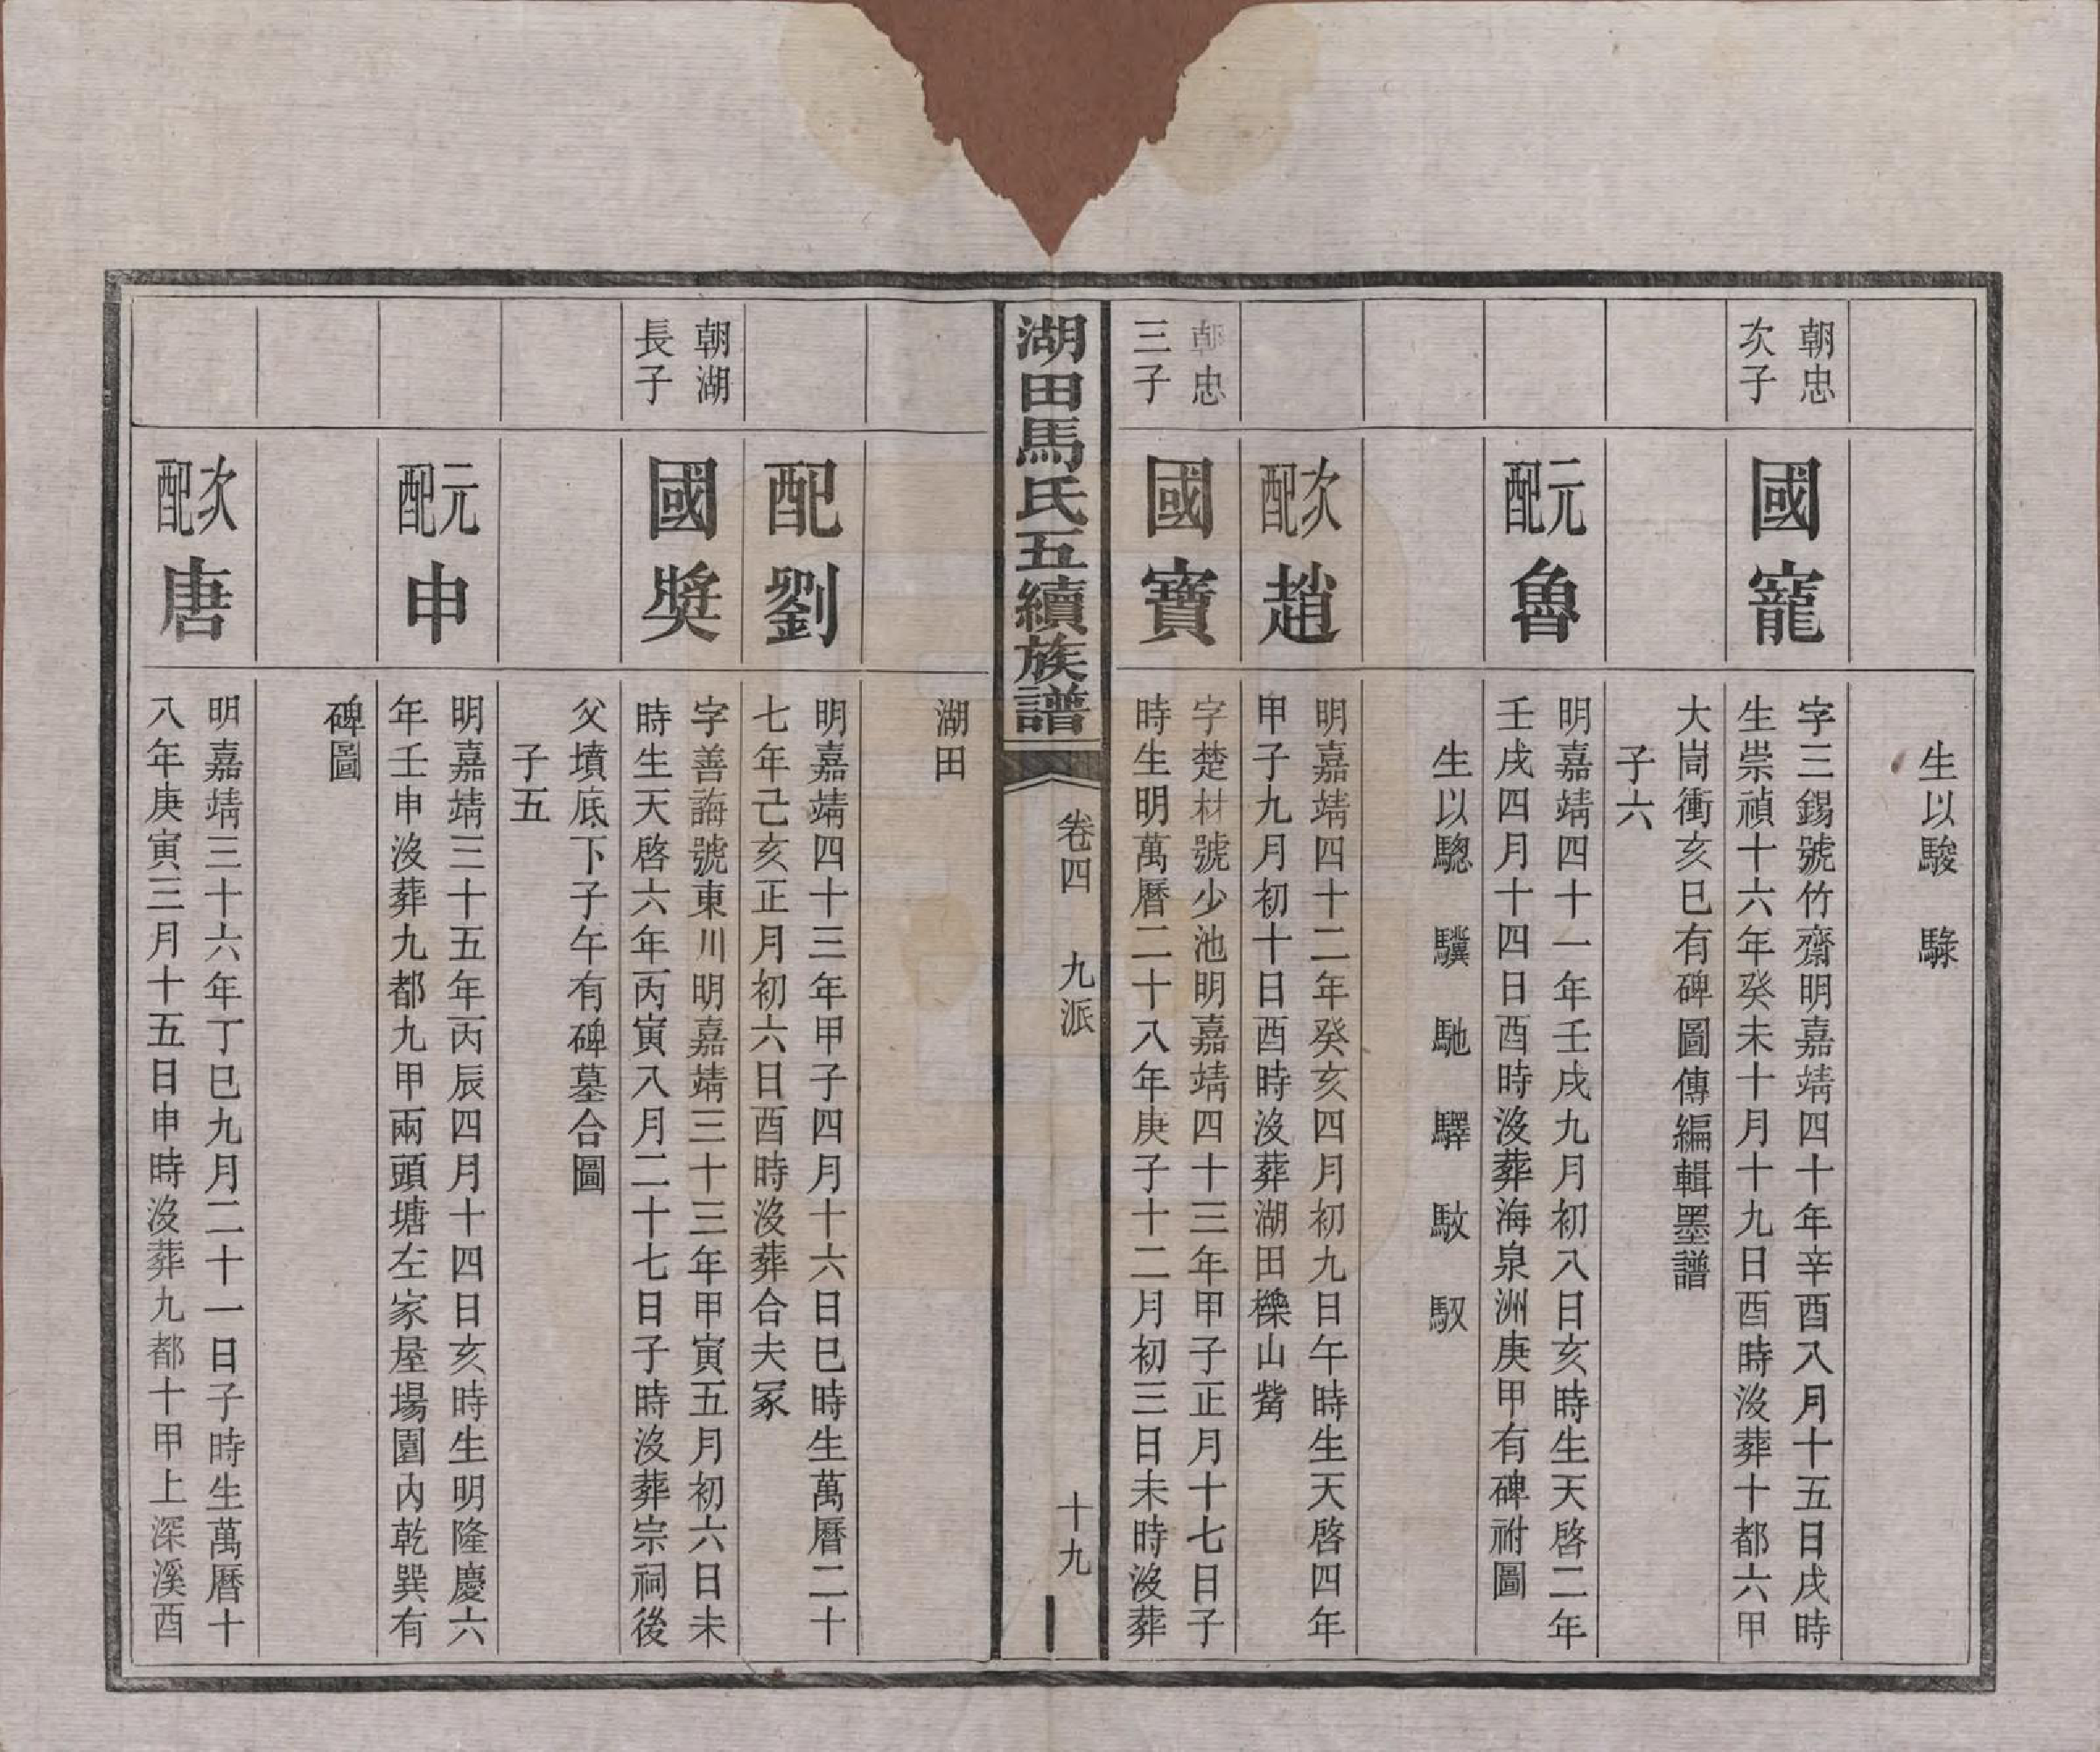 生以駿 騄
朝忠
次子
國寵
字三錫號竹齋明嘉靖四十年辛酉八月十五日戌時
生崇禎十六年癸未十月十九日酉時沒葬十都六甲
大崗衝亥巳有碑圖傳編輯墨譜
子六
元配
魯
明嘉靖四十一年壬戌九月初八日亥時生天啓二年
壬戌四月十四日酉時沒葬海泉洲庚甲有碑祔圖
生以驄 驥 馳 驛 馭
次配
趙
明嘉靖四十二年癸亥四月初九日午時生天啓四年
甲子九月初十日酉時沒葬湖田櫟山觜
朝忠
三子
國寶
字楚材號少池明嘉靖四十三年甲子正月十七日子
時生明萬曆二十八年庚子十二月初三日未時沒葬
湖田馬氏五續族譜
卷四 九派
十九
湖田
配劉
明嘉靖四十三年甲子四月十六日巳時生萬曆二十
七年己亥正月初六日酉時沒葬合夫冢
朝湖
長子
國奬
字善誨號東川明嘉靖三十三年甲寅五月初六日未
時生天啓六年丙寅八月二十七日子時沒葬宗祠後
父墳底下子午有碑墓合圖
子五
元配
申
明嘉靖三十五年丙辰四月十四日亥時生明隆慶六
年壬申沒葬九都九甲兩頭塘左家屋場園內乾巽有
碑圖
次配
唐
明嘉靖三十六年丁巳九月二十一日子時生萬曆十
八年庚寅三月十五日申時沒葬九都十甲上深溪酉